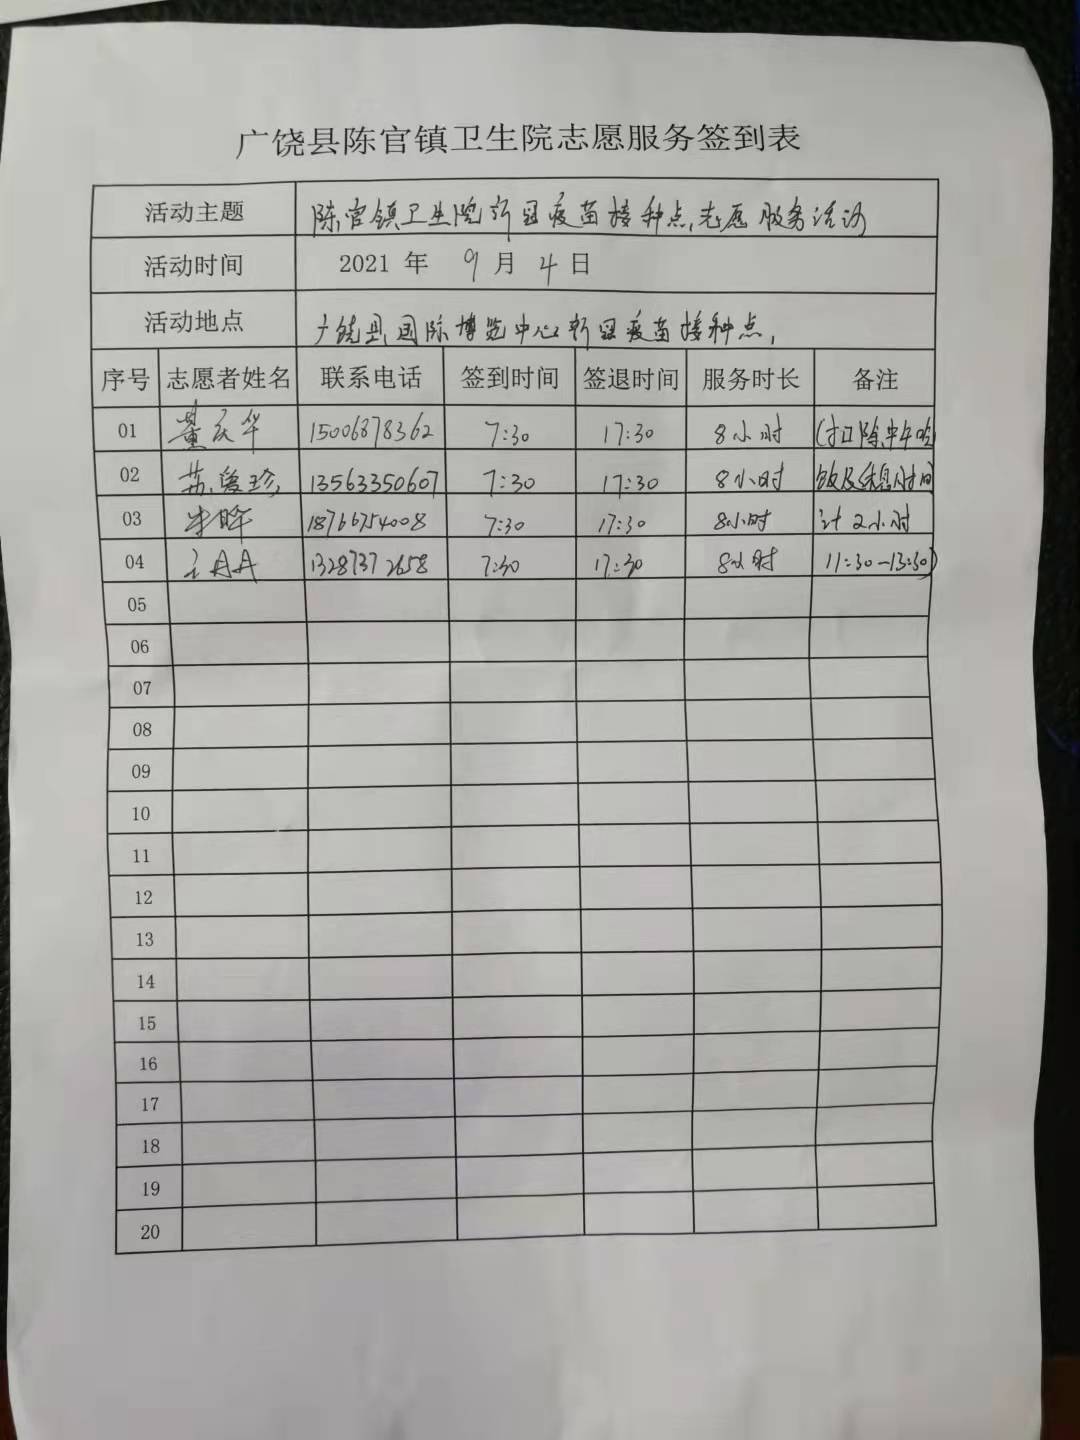 广饶县陈官镇卫生院志愿服务签到表
活动主题 陈官镇卫生院新冠疫苗接种点,志愿服务活动
活动时间 2021 年 9 月 4 日
活动地点 广饶县国际博览中心新冠疫苗接种点,
序号 志愿者姓名 联系电话 签到时间 签退时间 服务时长 备注
01 董庆华 15006878362 7:30 17:30 8小时 (扣除中午吃
02 苏爱珍 13563350607 7:30 17:30 8小时 饭及休息时间
03 18766754008 7:30 17:30 8小时 计2小时
04 13287372658 7:30 17:30 8小时 11:30-13:30)
05
06
07
08
09
10
11
12
13
14
15
16
17
18
19
20